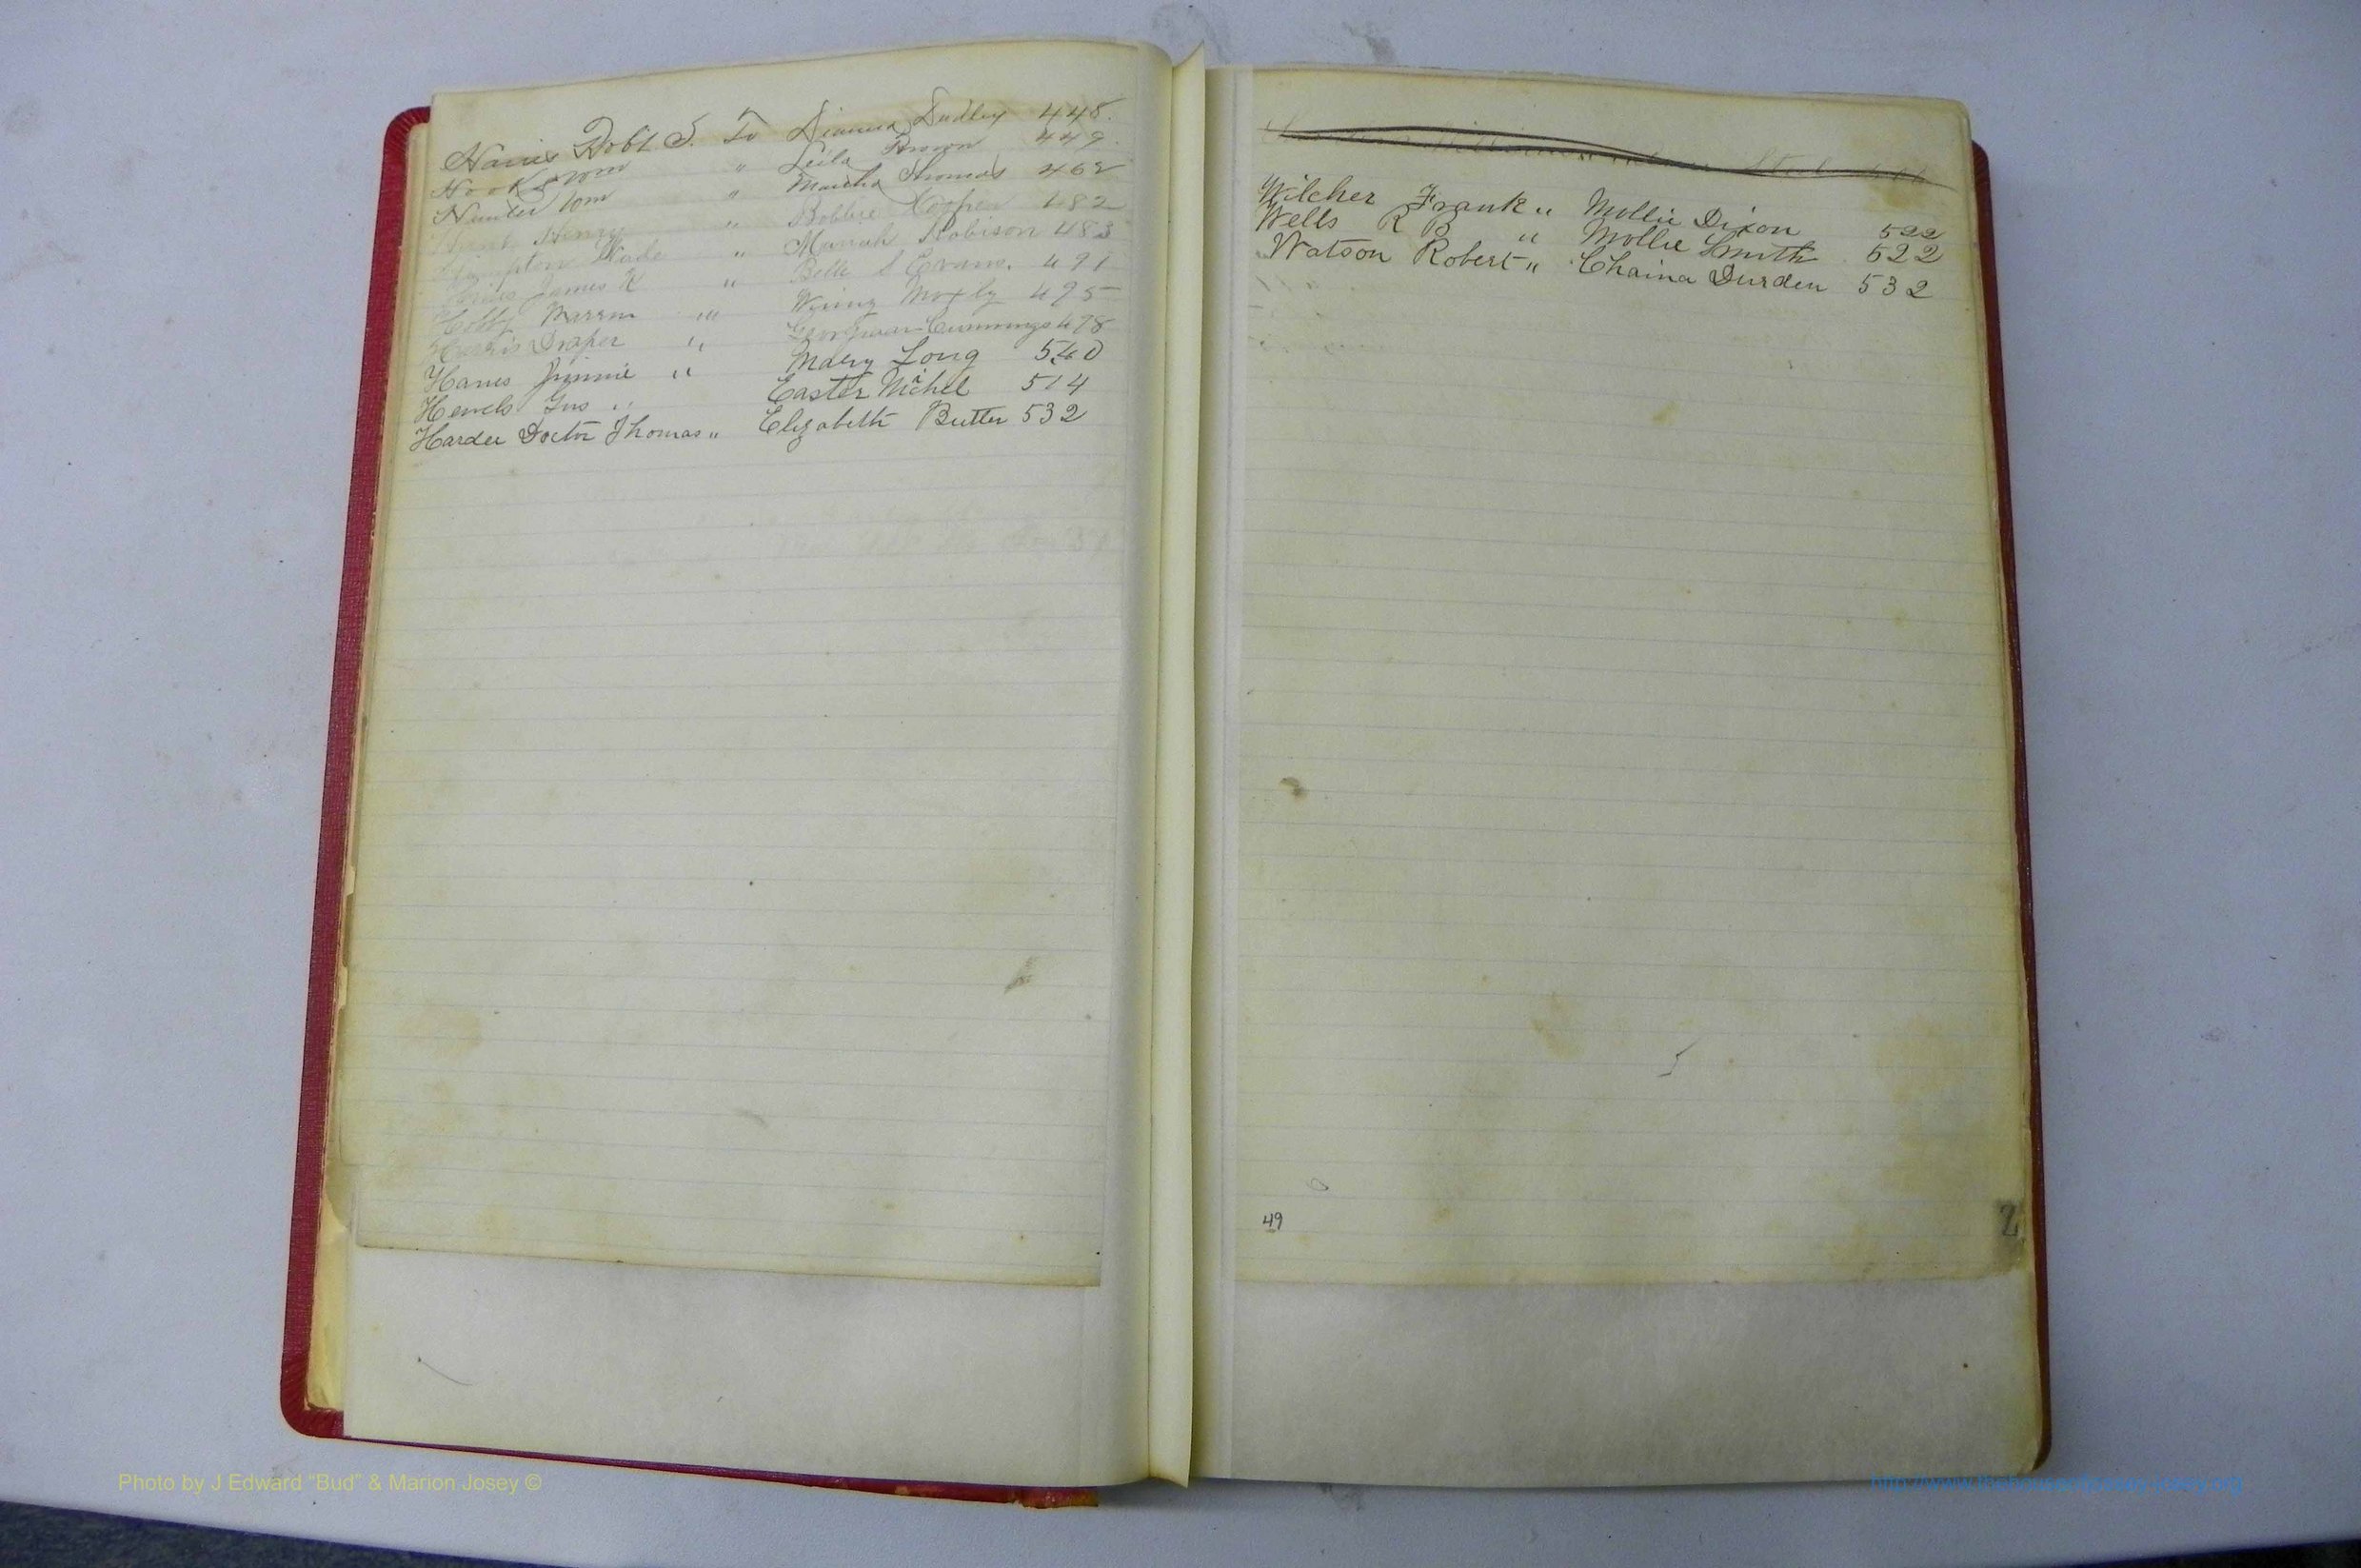 Harris Robt S. To Dianna Dudley 448.
Hooks Wm " Leila Brown 449.
Hunter Tom " Martha Thomas 462
Henry " Bobbie Cooper 482
Hampton Wade " Mariah Robison 483
James K " Belle S Evans. 491
Hobby Warren " Winny Moxly 495
Harris Draper " Cummings 498
Hanes Jimmie " Mary Long 540
Gus " Easter Michel 514
Hardee Doctor Thomas " Elizabeth Butler 532
Wilcher Frank " Mollie Dixon 522
Wells R B " Mollie Smith 522
Watson Robert " Chaina Durden 532
49
Z
Photo by J Edward "Bud" & Marion Josey ©